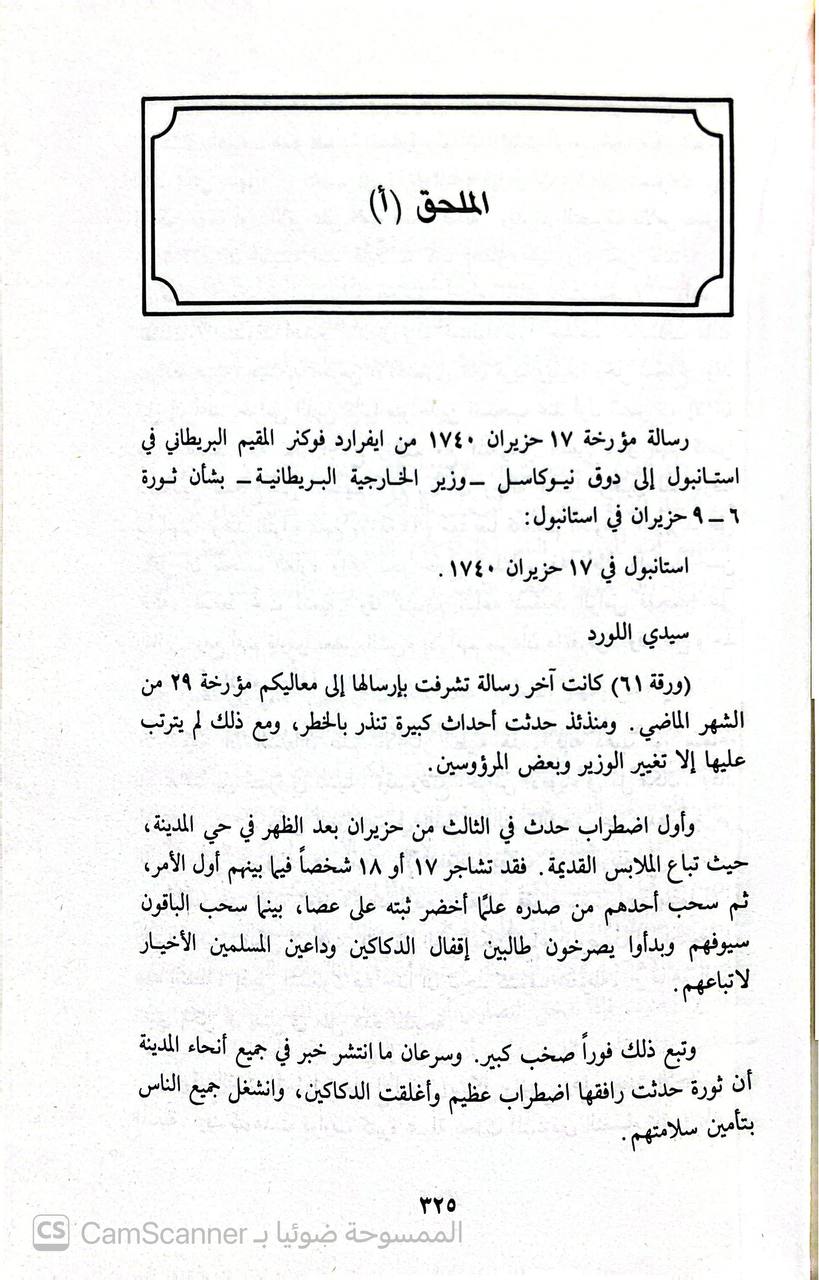 الملحق (أ)
رسالة مؤرخة ١٧ حزيران ١٧٤٠ من ايفرارد فوكنر المقيم البريطاني في
استانبول إلى دوق نيوكاسل – وزير الخارجية البريطانية – بشأن ثورة
٦ – ٩ حزيران في استانبول:
استانبول في ١٧ حزيران ١٧٤٠.
سيدي اللورد
(ورقة ٦١) كانت آخر رسالة تشرفت بإرسالها إلى معاليكم مؤرخة ٢٩ من
الشهر الماضي. ومنذئذ حدثت أحداث كبيرة تنذر بالخطر، ومع ذلك لم يترتب
عليها إلا تغيير الوزير وبعض المرؤوسين.
وأول اضطراب حدث في الثالث من حزيران بعد الظهر في حي المدينة،
حيث تباع الملابس القديمة. فقد تشاجر ١٧ أو ١٨ شخصاً فيما بينهم أول الأمر،
ثم سحب أحدهم من صدره علمًا أخضر ثبته على عصا، بينما سحب الباقون
سيوفهم وبدأوا يصرخون طالبين إقفال الدكاكين وداعين المسلمين الأخيار
لاتباعهم.
وتبع ذلك فوراً صخب كبير. وسرعان ما انتشر خبر في جميع أنحاء المدينة
أن ثورة حدثت رافقها اضطراب عظيم وأغلقت الدكاكين، وانشغل جميع الناس
بتأمين سلامتهم.
٣٢٥
CS CamScanner الممسوحة ضوئيا بـ